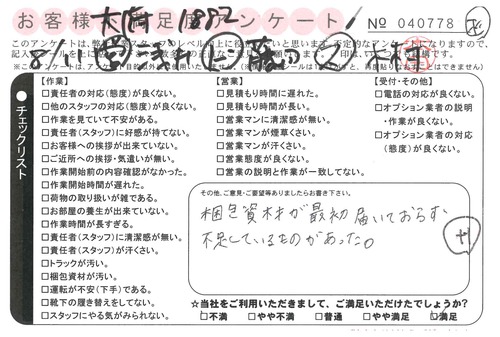 お客様満足度アンケート
大府 1882
No 040778
チェックリスト
【作業】
□責任者の対応(態度)が良くない。
□他のスタッフの対応(態度)が良くない。
□作業を見ていて不安がある。
□責任者(スタッフ)に好感が持てない。
□お客様への挨拶が出来ていない。
□ご近所への挨拶・気遣いが無い。
□作業開始前の内容確認がなかった。
□作業開始時間が遅れた。
□荷物の取り扱いが雑である。
□お部屋の養生が出来ていない。
□作業時間が長すぎる。
□責任者(スタッフ)に清潔感が無い。
□責任者(スタッフ)が汗くさい。
□トラックが汚い。
□梱包資材が汚い。
□運転が不安(下手)である。
□靴下の履き替えをしてない。
□スタッフにやる気がみられない。
【営業】
□見積もり時間に遅れた。
□見積もり時間が長い。
□営業マンに清潔感が無い。
□営業マンが煙草くさい。
□営業マンが汗くさい。
□営業態度が良くない。
□営業の説明と作業が一致してない。
【受付・その他】
□電話の対応が良くない。
□オプション業者の説明
・作業が良くない。
□オプション業者の対応
(態度)が良くない。
その他、ご意見・ご要望等ありましたらお書き下さい。
梱包資材が最初届いておらず、
不足しているものがあった。
☆当社をご利用いただきまして、ご満足いただけたでしょうか?
□不満 □やや不満 □普通 □やや満足 □満足